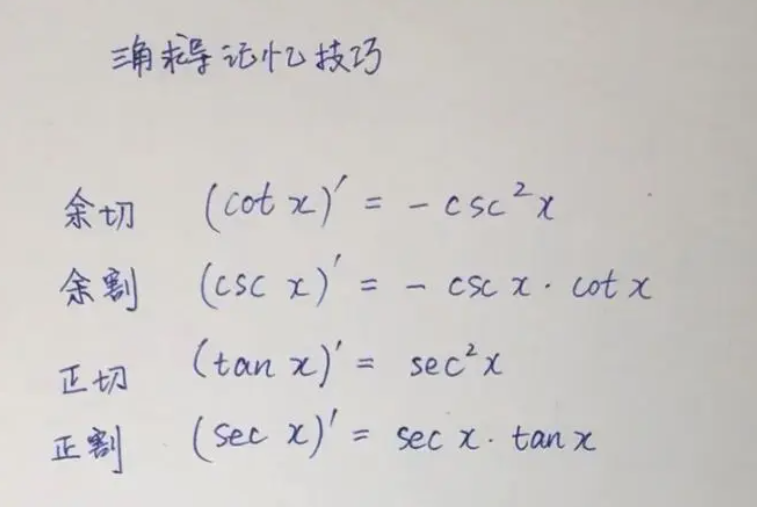 三角求导记忆技巧
余切 (cot x)' = - csc²x
余割 (csc x)' = - csc x · cot x
正切 (tan x)' = sec²x
正割 (sec x)' = sec x · tan x